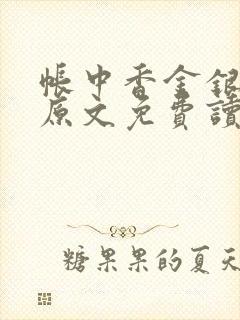 帳中香金銀
原文免費讀
糖果果的夏天